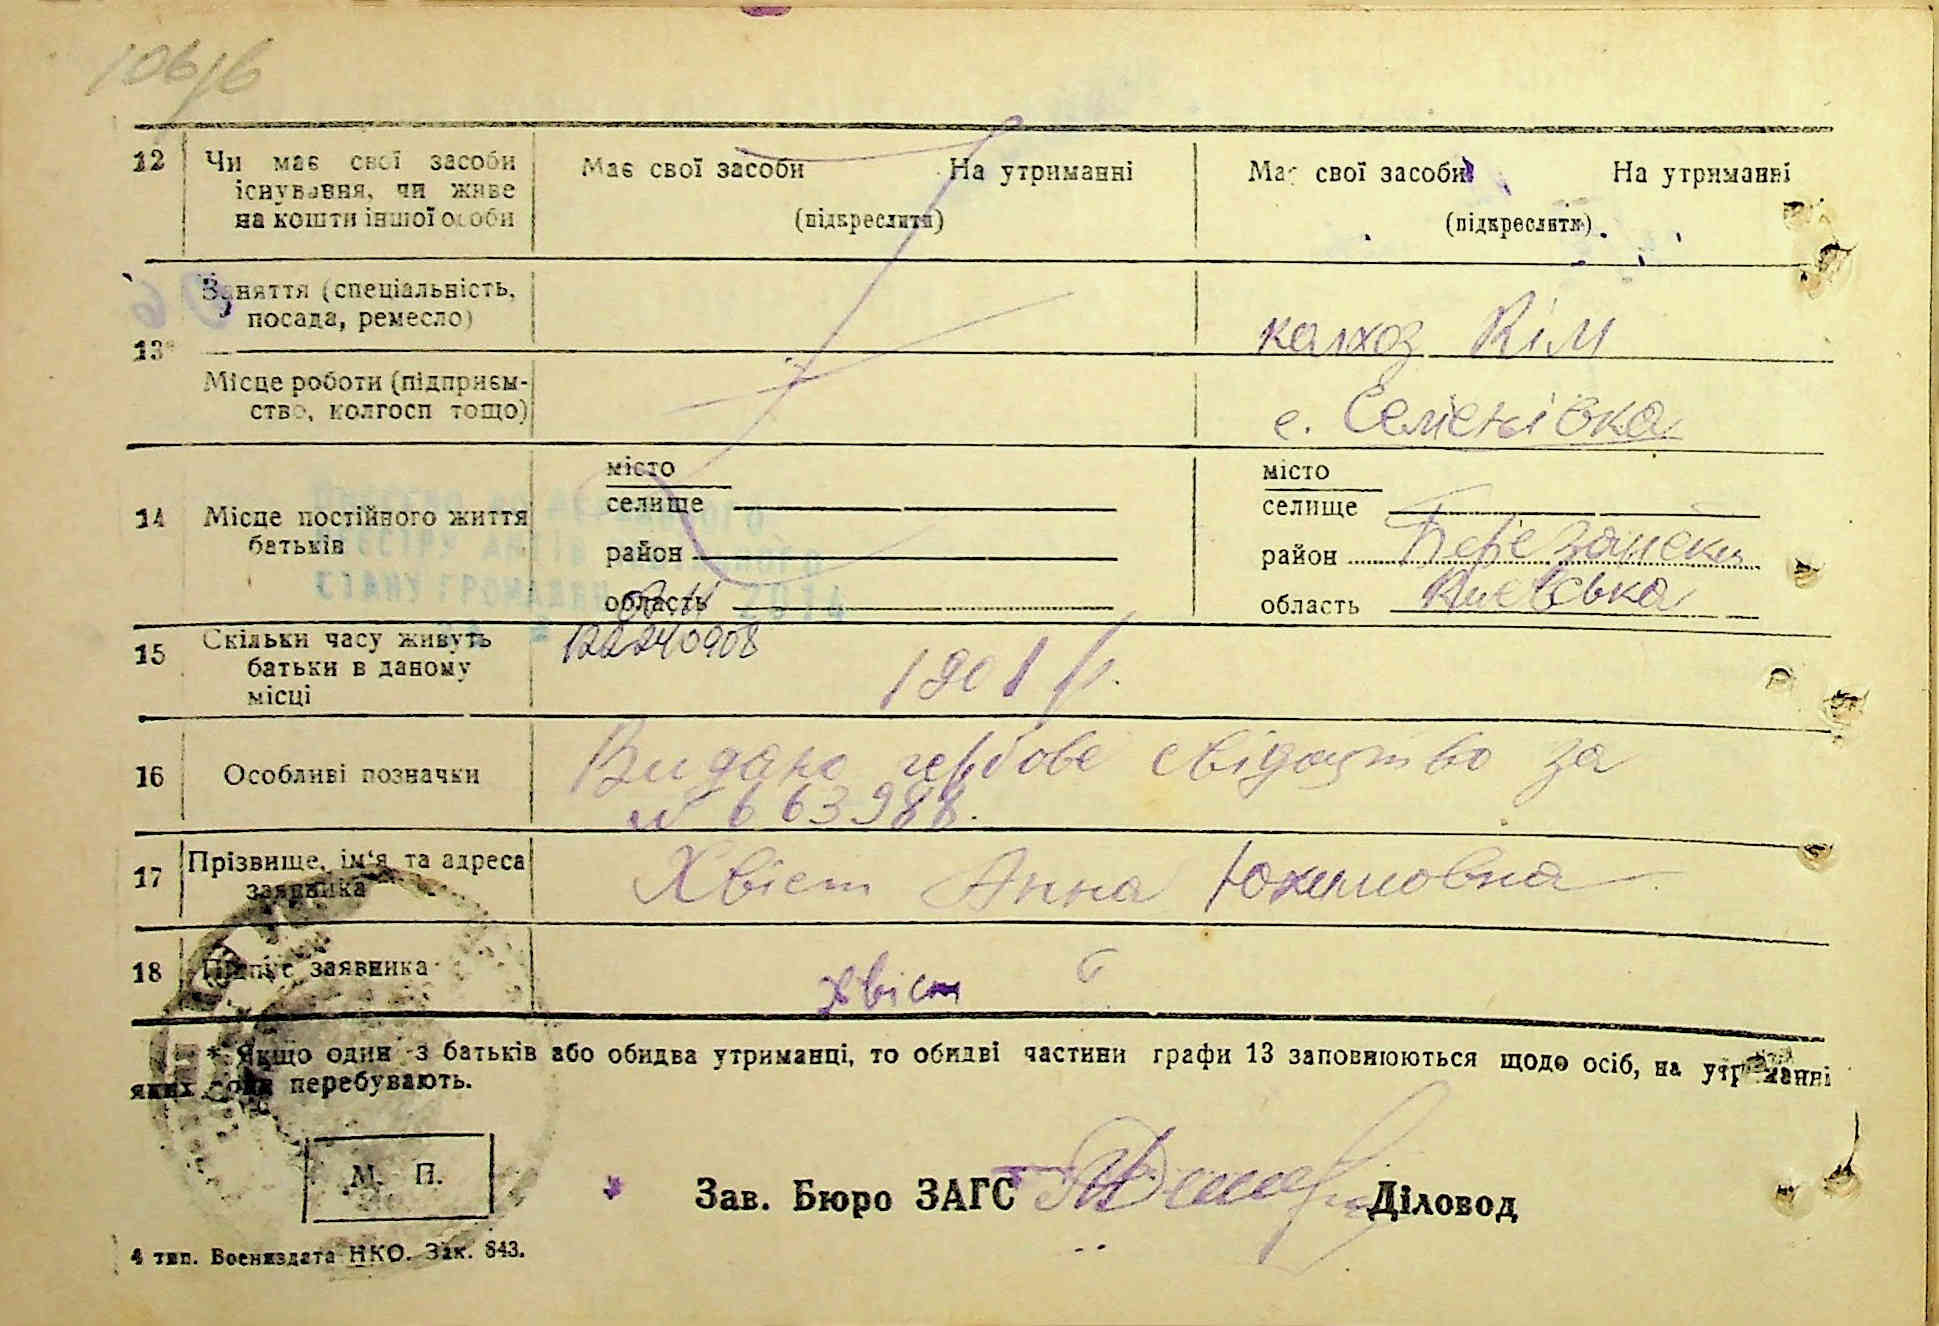 106/6
12 Чи має свої засоби існування, чи живе на кошти іншої особи
Має свої засоби На утриманні
(підкреслити)
Має свої засоби На утриманні
(підкреслити).
13*
Заняття (спеціальність, посада, ремесло)
колхоз Кім
Місце роботи (підприєм-
ство, колгосп тощо)
с. Семенівка
14 Місце постійного життя
батьків
місто
селище
район
область
місто
селище
район Березанський
область Київська
СТАНУ ГРОМАДЯН 2014
15 Скільки часу живуть
батьки в даному
місці
12240908
1901 р.
16 Особливі позначки
Видано гербове свідоцтво за
№ 663988.
17 Прізвище, ім'я та адреса
заявника
Хвіст Анна Юхимовна
18 Підпис заявника
Хвіст
* Якщо один з батьків або обидва утриманці, то обидві частини графи 13 заповнюються щодо осіб, на утриманні
яких вони перебувають.
М. П.
Зав. Бюро ЗАГС
Діловод
4 тип. Воениздата НКО. Зак. 843.